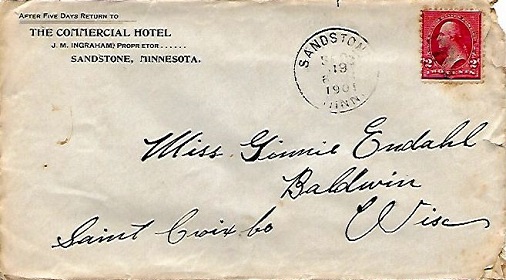 AFTER FIVE DAYS RETURN TO
THE COMMERCIAL HOTEL
J. M. INGRAHAM, PROPRIETOR......
SANDSTONE, MINNESOTA.
SANDSTON
19
1901
MINN.
2 TWO CENTS 2
Miss Ginnie Endahl
Baldwin
Saint Croix Co Wisc